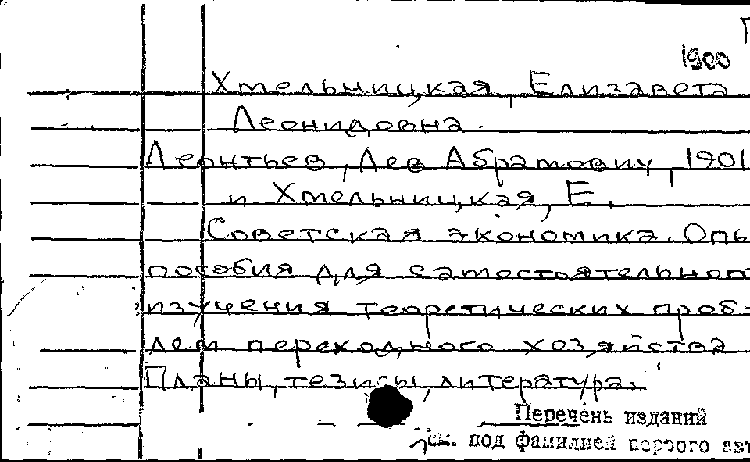 1900
Хмельницкая, Елизавета
Леонидовна.
Леонтьев, Лев Абрамович, 1901
и Хмельницкая, Е.
Советская экономика. Опы
пособия для самостоятельного
изучения теоретических проб-
лем переходного хозяйства
Планы, тезисы, литература.
Перечень изданий
см. под фамилией первого авт